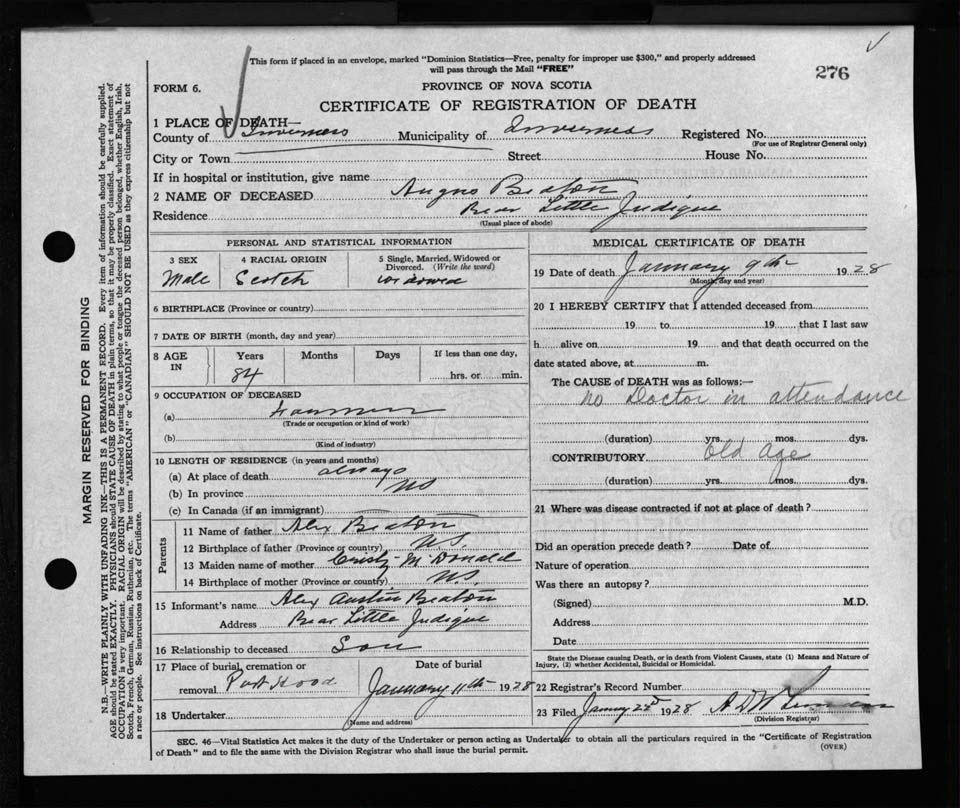 This form if placed in an envelope, marked "Dominion Statistics—Free, penalty for improper use $300," and properly addressed
will pass through the Mail "FREE"
276
FORM 6.
PROVINCE OF NOVA SCOTIA
CERTIFICATE OF REGISTRATION OF DEATH
1 PLACE OF DEATH—
County of Inverness Municipality of Inverness Registered No.
(For use of Registrar General only)
City or Town Street House No.
If in hospital or institution, give name
2 NAME OF DECEASED Angus Beaton
Residence Rear Little Judique
(Usual place of abode)
PERSONAL AND STATISTICAL INFORMATION
3 SEX 4 RACIAL ORIGIN 5 Single, Married, Widowed or
Divorced. (Write the word)
Male Scotch Widowed
6 BIRTHPLACE (Province or country)
7 DATE OF BIRTH (month, day and year)
8 AGE IN Years Months Days If less than one day,
84 hrs. or min.
9 OCCUPATION OF DECEASED
(a) Farmer
(Trade or occupation or kind of work)
(b)
(Kind of industry)
10 LENGTH OF RESIDENCE (in years and months)
(a) At place of death always
(b) In province NS
(c) In Canada (if an immigrant)
Parents
11 Name of father Alex Beaton
12 Birthplace of father (Province or country) N.S.
13 Maiden name of mother McDonald
14 Birthplace of mother (Province or country) N.S.
15 Informant's name Alex Austin Beaton
Address Rear Little Judique
16 Relationship to deceased Son
17 Place of burial, cremation or Date of burial
removal Port Hood January 11th 1928
18 Undertaker
(Name and address)
MEDICAL CERTIFICATE OF DEATH
19 Date of death January 9th 1928
(Month, day and year)
20 I HEREBY CERTIFY that I attended deceased from
19 to 19 that I last saw
h alive on 19 and that death occurred on the
date stated above, at m.
The CAUSE of DEATH was as follows:—
no Doctor in attendance
(duration) yrs. mos. dys.
CONTRIBUTORY Old Age
(duration) yrs. mos. dys.
21 Where was disease contracted if not at place of death?
Did an operation precede death? Date of
Nature of operation
Was there an autopsy?
(Signed) M.D.
Address
Date
State the Disease causing Death, or in death from Violent Causes, state (1) Means and Nature of
Injury, (2) whether Accidental, Suicidal or Homicidal.
22 Registrar's Record Number
23 Filed January 22d 1928
(Division Registrar)
SEC. 46—Vital Statistics Act makes it the duty of the Undertaker or person acting as Undertaker to obtain all the particulars required in the "Certificate of Registration
of Death" and to file the same with the Division Registrar who shall issue the burial permit.
(OVER)
MARGIN RESERVED FOR BINDING
N.B.—WRITE PLAINLY WITH UNFADING INK—THIS IS A PERMANENT RECORD. Every item of information should be carefully supplied.
AGE should be stated EXACTLY. PHYSICIANS should STATE CAUSE OF DEATH in plain terms, so that it may be properly classified. Exact statement of
OCCUPATION is very important. RACIAL ORIGIN will be described by stating to what people or tongue the deceased person belonged, whether English, Irish,
Scotch, French, German, Russian, Ruthenian, etc. The terms "AMERICAN" or "CANADIAN" SHOULD NOT BE USED as they express citizenship but not
a race or people. See instructions on back of Certificate.